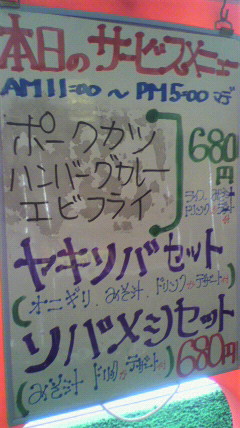 本日のサービスメニュー
AM11:00 ~ PM5:00 まで
ポークカツ
ハンバーグカレー
エビフライ
680円
ライス、みそ汁
ドリンク
ヤキソバセット
(オニギリ、みそ汁、ドリンク
ソバメシセット
(みそ汁 ドリンク
680円